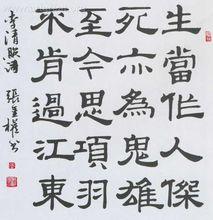 生當作人傑
死亦為鬼雄
至今思項羽
不肯過江東
李清照詩 張權書